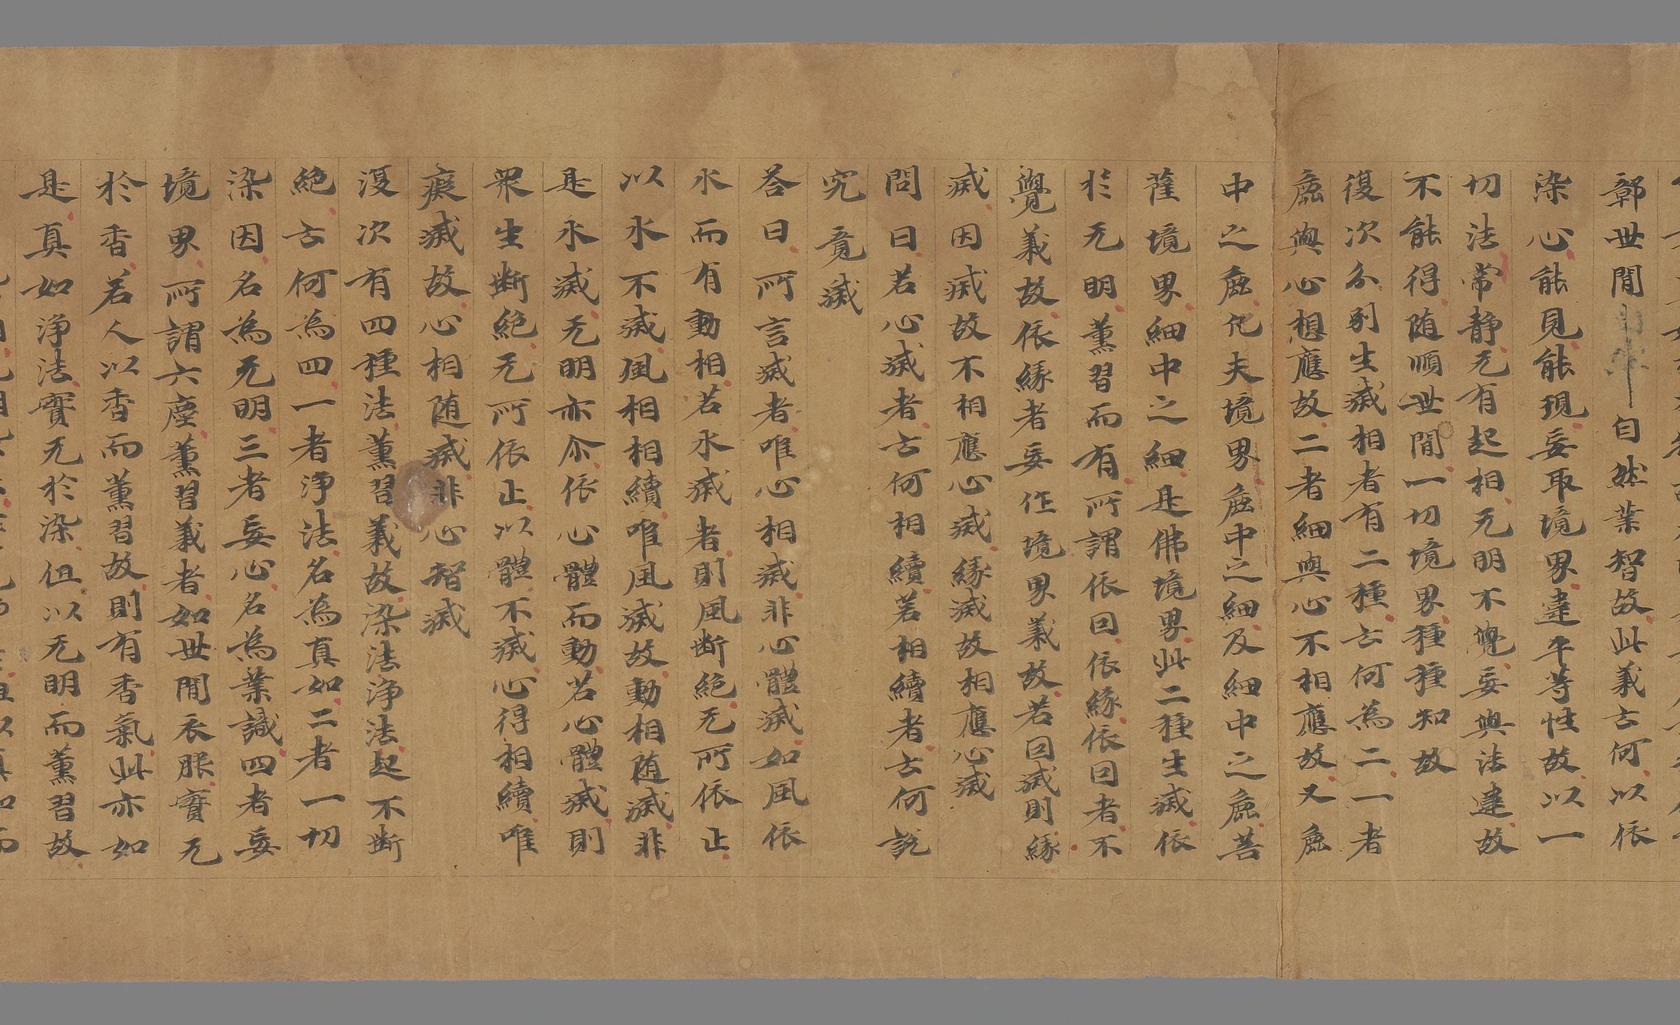 鄣世間自然業智故此義云何以依
染心能見能現妄取境界違平等性故以一
切法常静无有起相无明不覺妄與法違故
不能得随順世間一切境界種種知故
復次分别生滅相者有二種云何為二一者
麁與心想應故二者細與心不相應故又麁
中之麁凡夫境界麁中之細及細中之麁菩
薩境界細中之細是佛境界此二種生滅依
於无明薰習而有所謂依因依緣依因者不
覺義故依緣者妄作境界義故若因滅則緣
滅因滅故不相應心滅緣滅故相應心滅
問曰若心滅者云何相續若相續者云何說
究竟滅
荅曰所言滅者唯心相滅非心體滅如風依
水而有動相若水滅者則風断絕无所依止
以水不滅風相相續唯風滅故動相随滅非
是水滅无明亦尒依心體而動若心體滅則
衆生断絕无所依止以體不滅心得相續唯
癡滅故心相随滅非心智滅
復次有四種法薰習義故染法淨法起不断
絕云何為四一者淨法名為真如二者一切
染因名為无明三者妄心名為業識四者妄
境界所謂六塵薰習義者如世間衣服實无
於香若人以香而薰習故則有香氣此亦如
是真如淨法實无於染但以无明而薰習故